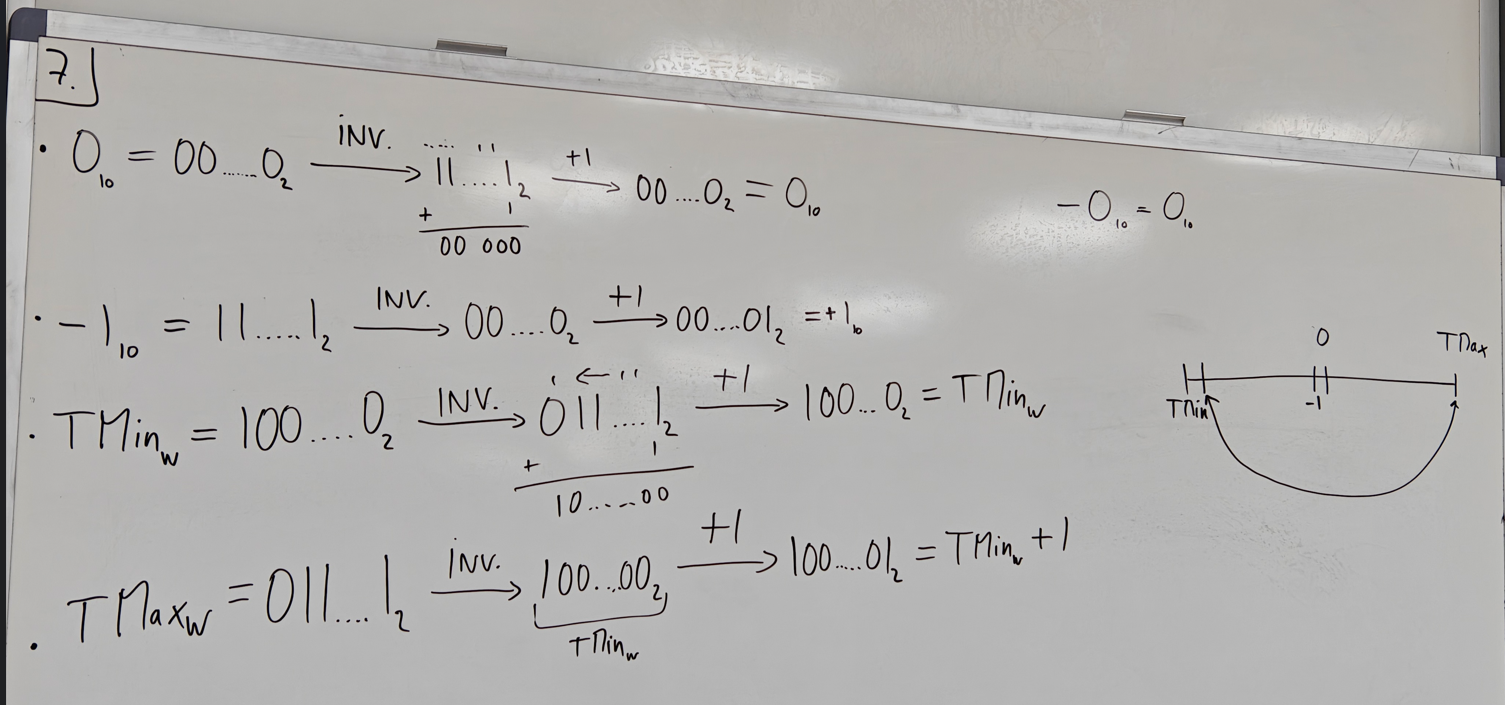 7.
· 0₁₀ = 00.....0₂ INV. → 11....1₂ +1 → 00....0₂ = 0₁₀
+ 1
00 000
-0₁₀ = 0₁₀
· -1₁₀ = 11.....1₂ INV. → 00....0₂ +1 → 00....01₂ = +1₁₀
· TMin_w = 100....0₂ INV. → 011....1₂ +1 → 100...0₂ = TMin_w
+ 1
10.....00
· TMax_w = 011....1₂ INV. → 100...00₂ +1 → 100.....01₂ = TMin_w + 1
TMin_w
0
TMax
TMin
-1